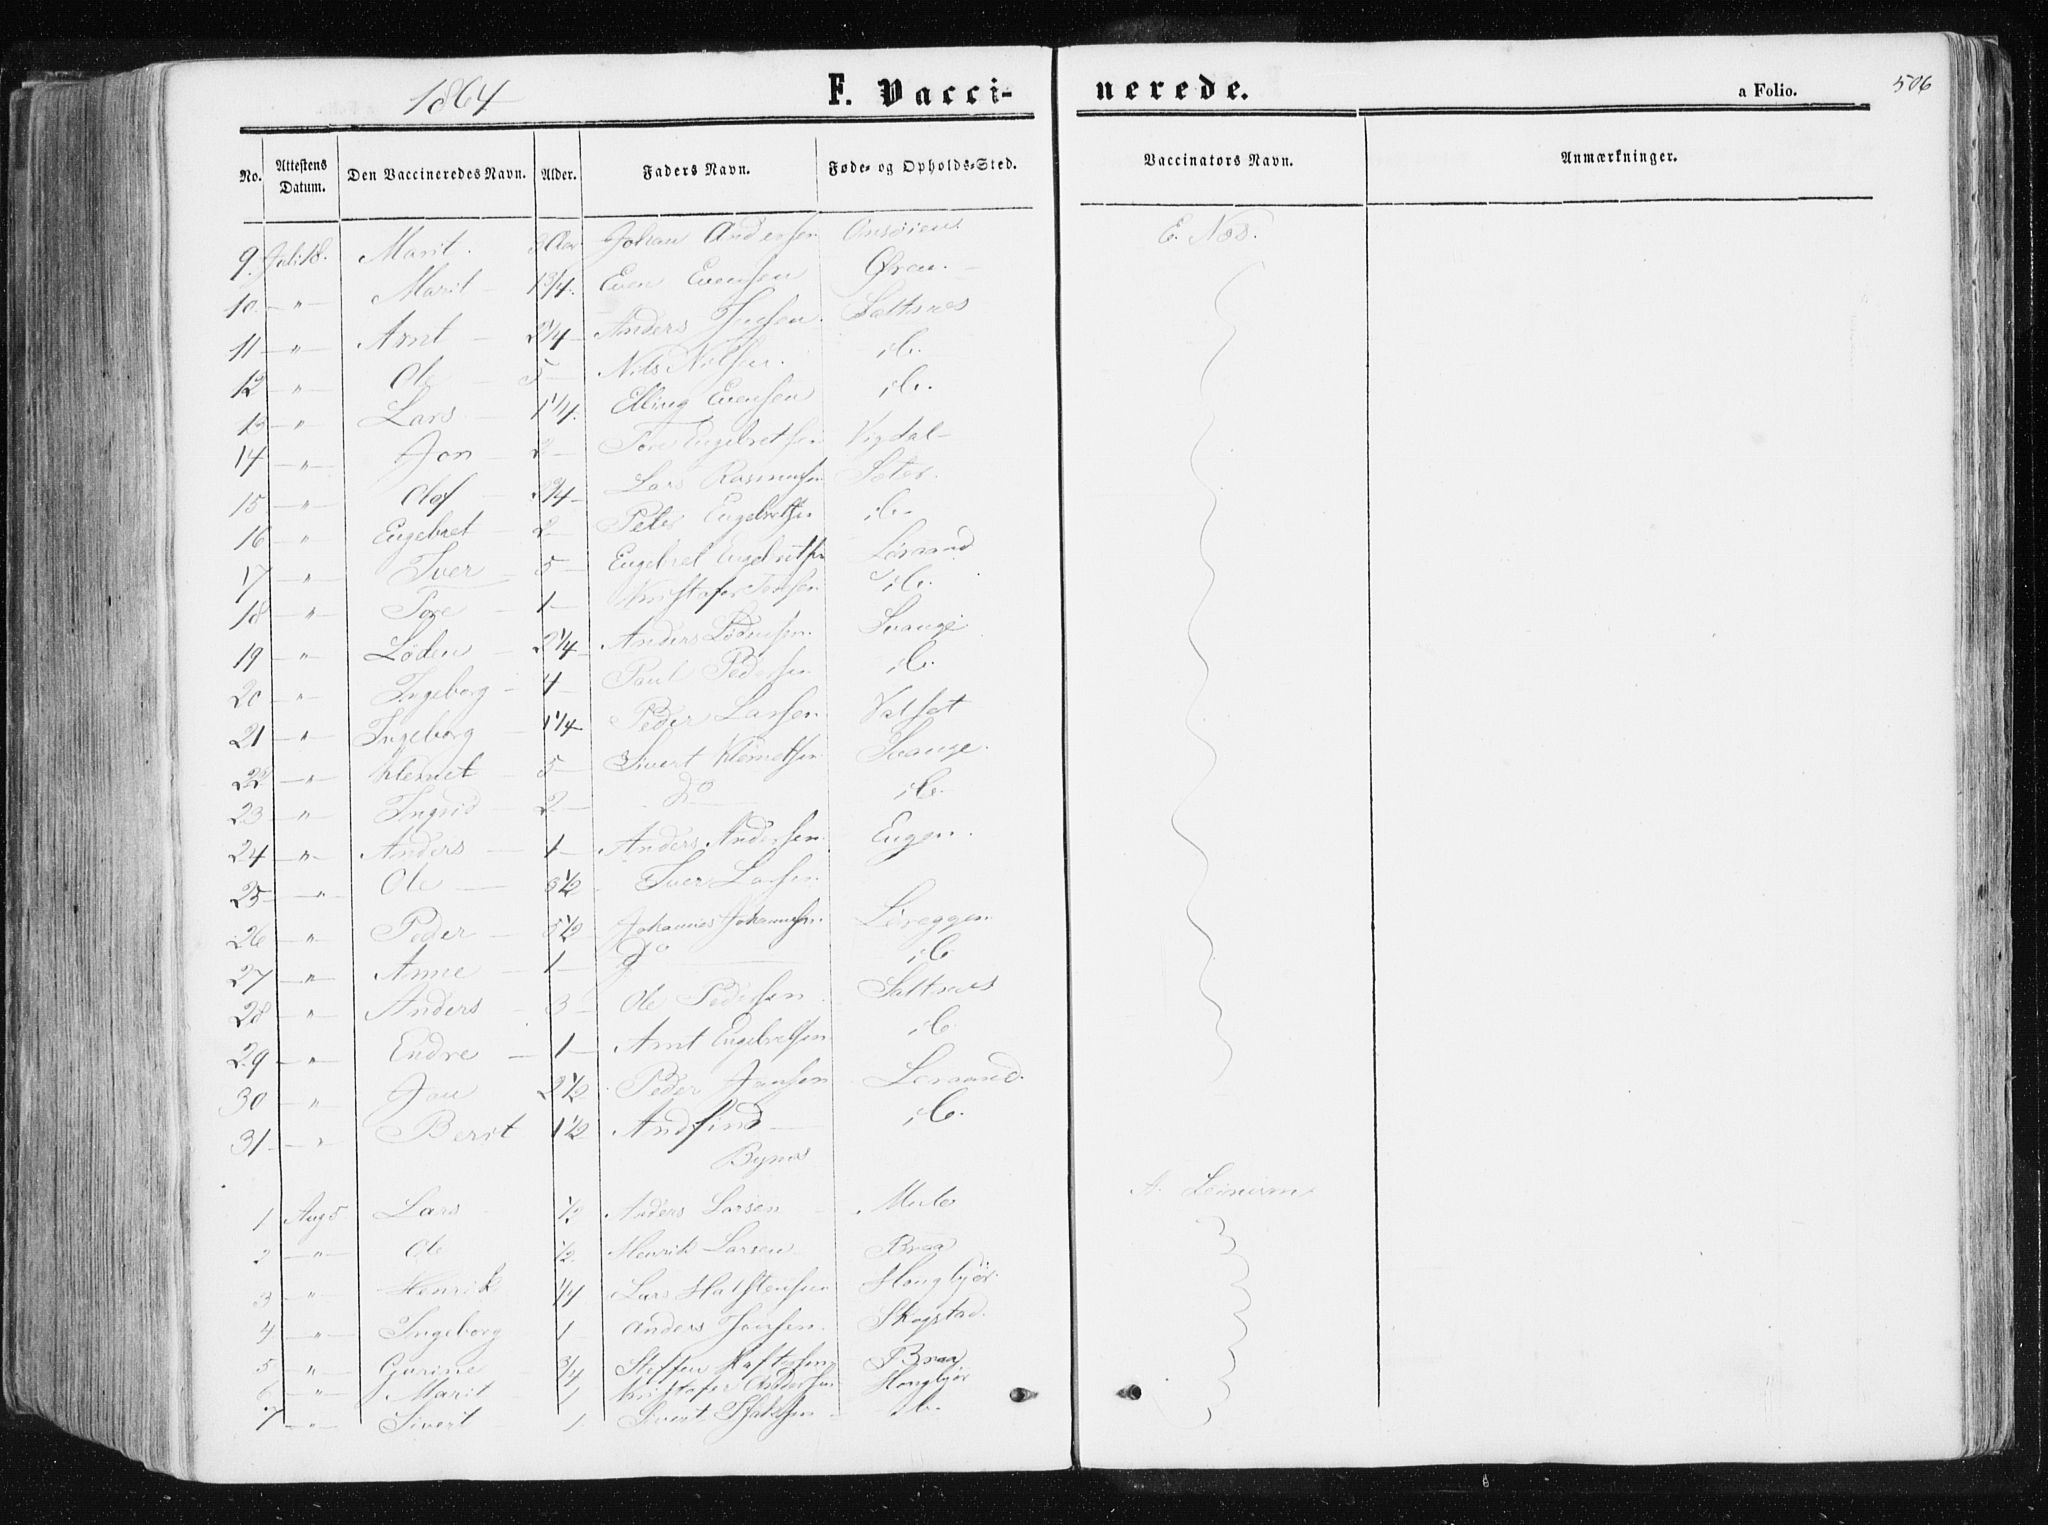 1864 F. Vacci- nerede. a Folio. 506
No. Attestens Datum. Den Vaccineredes Navn. Alder. Faders Navn. Føde- og Opholds-Sted. Vaccinators Navn. Anmærkninger.
9. Juli 18. Marit. 3 Aar Johan Andersen E. Næs.
10 — " — Marit — 1 3/4. Even Evensen Øren. —
11 — " — Arnt — 2 1/4 Anders Jensen. Saltnæs
12 — " — Ole — 5 — Nils Nilsen. ib.
13 — " — Lars — 1 1/4. Elling Evensen ib.
14 — " — Jon — 2 — Tore Engebretsen Vigdal —
15 — " — Olof — 2 3/4 — Lars Rasmussen Sæter.
16 — " — Engebret — 2 — Peter Engebretsen ib.
17 — " — Iver — 5 — Engebret Engebretsen Leraand
18 — " — Tore — 1 — Kristofer Toresen ib.
19 — " — Loden — 2 1/4 — Anders Lodensen. Svange
20 — " — Ingeborg — 4 — Paul Pedersen ib.
21 — " — Ingeborg — 1 1/4 Peder Larsen Valset
22 — " — Klemet — 5 — Sivert Klemetsen Svange.
23 — " — Ingrid — 2 — do — ib.
24 — " — Anders — 1 — Anders Andersen Engen.
25 — " — Ole — 3 1/2 Iver Larsen.
26 — " — Peder — 5 1/2 Johannes Johannesen. Løreggen
27 — " — Anne — 1 — do — ib
28 — " — Anders — 3 — Ole Pedersen Saltnæs
29 — " — Endre — 1 — Arnt Engebretsen ib
30 — " — Jon 2 1/2 Peder Jonsen Leraand.
31 — " — Berit 1 1/2 Andfind — ib.
Bynæs
1 Aug 5 Lars — 1/2 Anders Larsen — Mule A.
2 — " — Ole 1/2 Henrik Larsen — Braa
3 — " — Henrik 1/4 Lars Halstensen
4 — " — Ingeborg 1 — Anders Jensen. Skogstad.
5 — " — Gurine 3/4 Steffen Braa
6 — " — Marit 1 Kristofer Andersen
7 — " — Sivert 1 Sivert — ib.